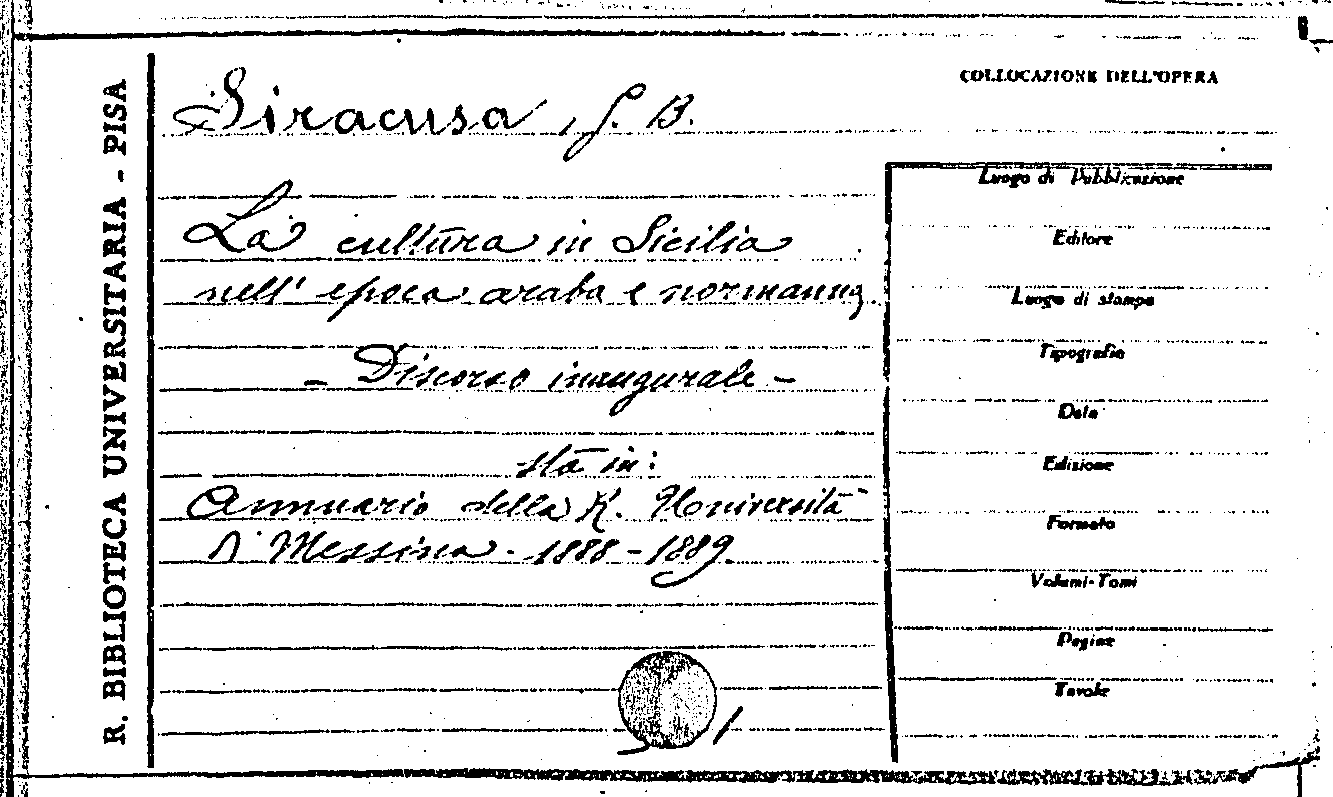 R. BIBLIOTECA UNIVERSITARIA - PISA
COLLOCAZIONE DELL'OPERA
Siracusa, G. B.
La cultura in Sicilia
nell' epoca araba e normanna.
- Discorso inaugurale -
sta in:
Annuario della R. Università
di Messina - 1888-1889.
Luogo di Pubblicazione
Editore
Luogo di stampa
Tipografia
Data
Edizione
Formato
Volumi-Tomi
Pagine
Tavole